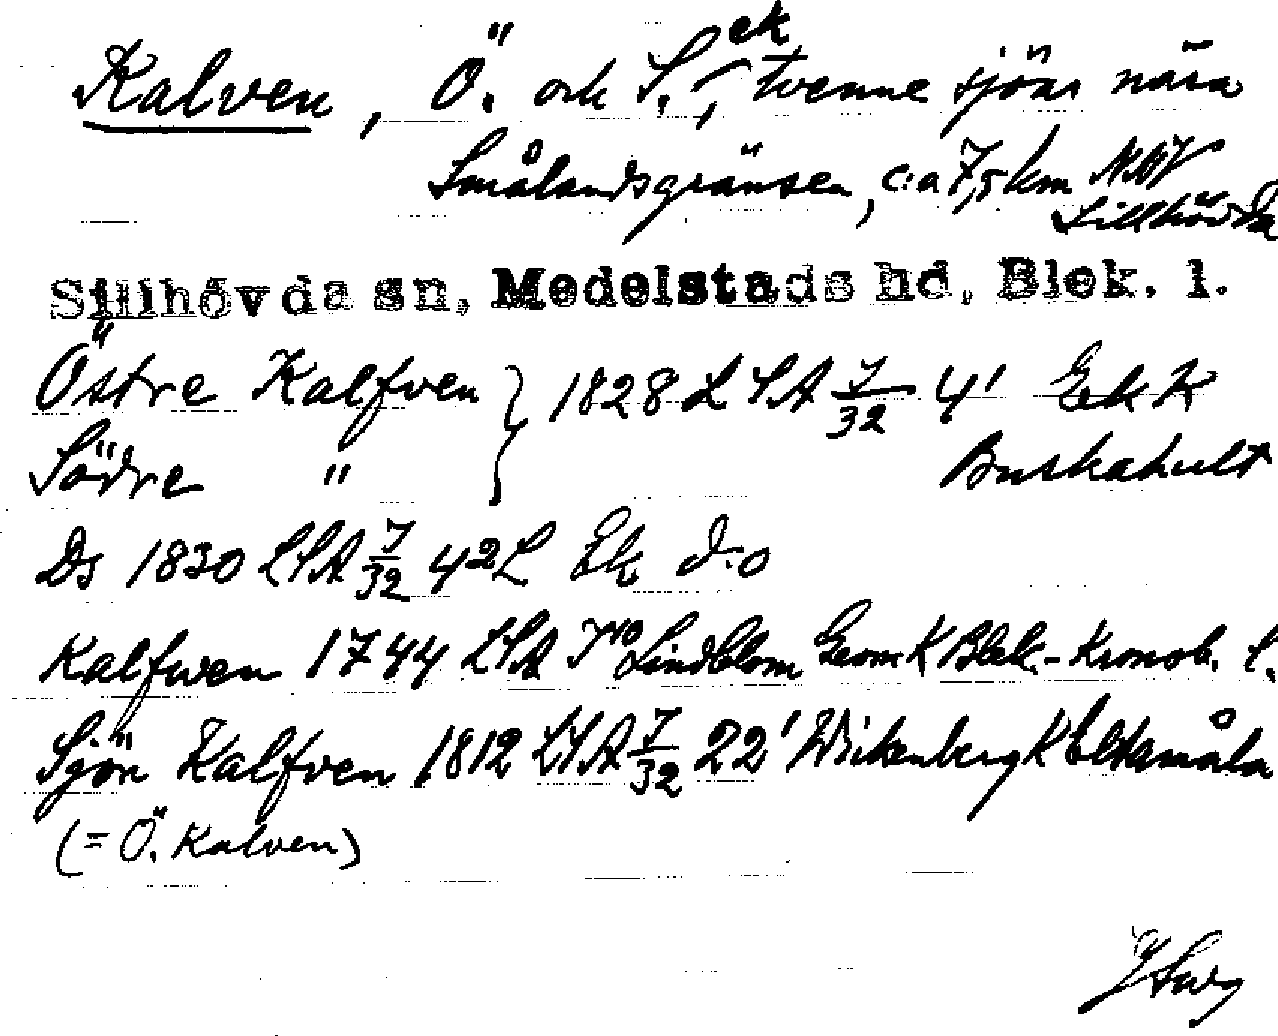 ek
Kalven, Ö. och S., tvenne sjöar nära
Smålandsgränsen, c:a 7,5 km NNV
Sillhövda
Sillhövda sn, Medelstads hd, Blek. l.
Östre Kalfven } 1828 LSA 7/32 4' Ek K
Södre " Buskahult
Ds 1830 LSA 7/32 42L Ek d:o
Kalfwen 1744 LSA Lindblom Geom K Blek.-Kronob. l.
Sjön Kalfven 1812 LSA 7/32 22' Wickenberg K Eldsmåla
(= Ö. Kalven)